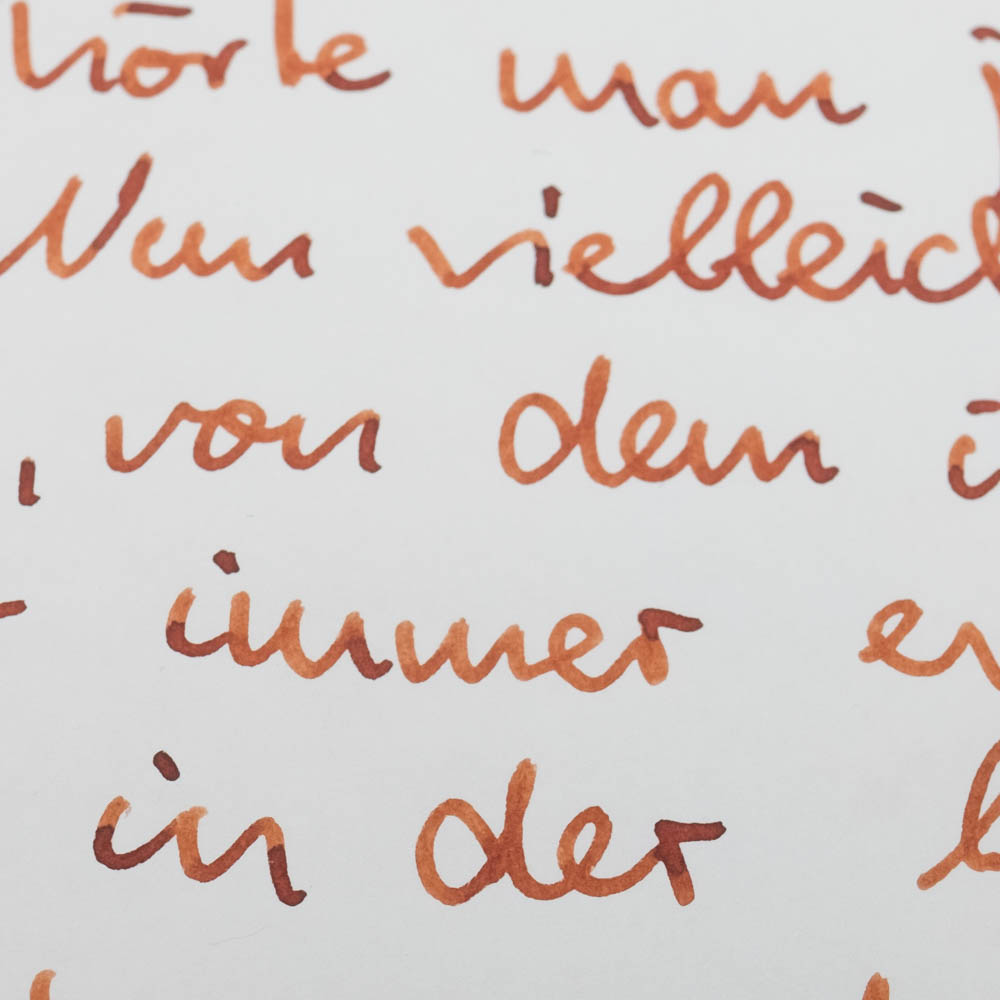 hörte man
Nun vielleich
, von dem
immer
in der